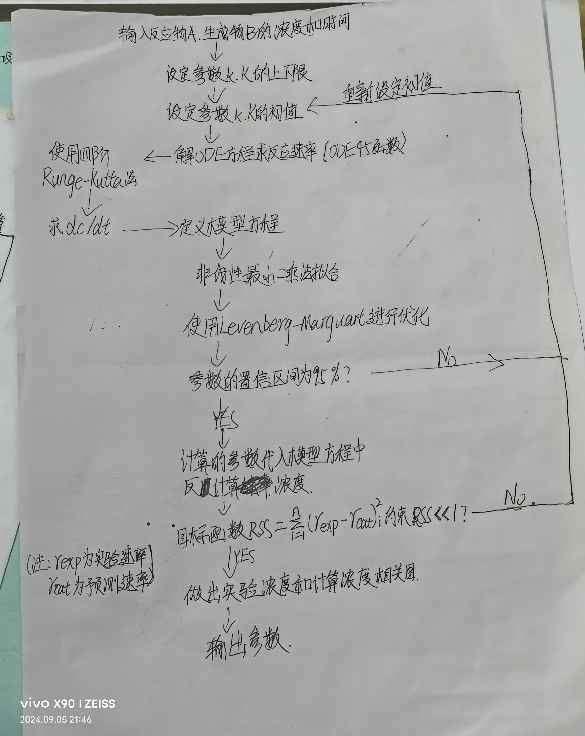 输入反应物A、生成物B的浓度和时间
设定参数k.K的上下限
设定参数k.K的初值
重新设定初值
使用四阶
Runge-Kutta法
解ODE方程求反应速率(ODE45函数)
求dc/dt
定义模型方程
非线性最小二乘法拟合
使用Levenberg-Marquart进行优化
参数的置信区间为95%?
No
YES
计算的参数代入模型方程中
反计算浓度
目标函数RSS=∑(rexp-rcat)²约束RSS<<1?
No.
n
i=1
YES
(注:rexp为实验速率
rcat为预测速率)
做出实验浓度和计算浓度相关图
输出参数.
vivo X90 | ZEISS
2024.09.05 21:46